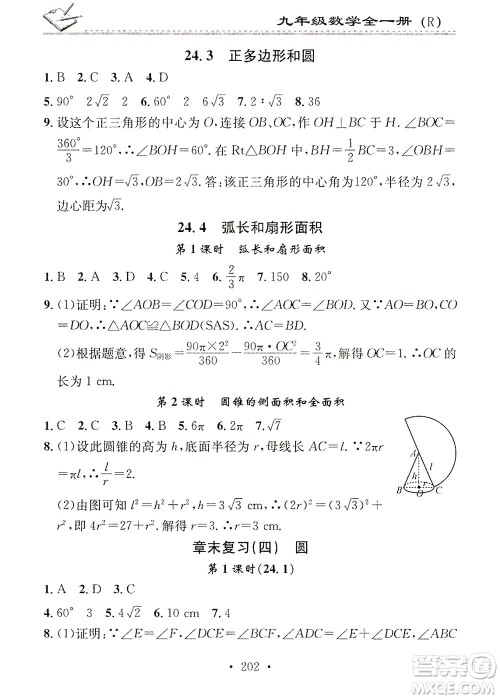 九年级数学全一册 (R)
24.3 正多边形和圆
1. B 2. C 3. A 4. C
5. 90° 2√2 2 6. 60° 2 6√3 7. 2∶√3 8. 36
9. 设这个正三角形的中心为O,连接OB、OC,作OH⊥BC,则∠BOC=
360°/3=120°,∴∠BOH=60°. 在Rt△BOH中,BH=1/2BC=√3,∠BOH
=60°,∴OH=1,OB=2. 答:该正三角形的中心角为120°,半径为2,
边心距为√3.
24.4 弧长和扇形面积
第1课时 弧长和扇形面积
1. B 2. A 3. C 4. D 5. 4 6. 2/3π 7. 150 8. 20°
9. (1)证明:∵∠AOB=∠COD=90°,∴∠AOC=∠BOD. ∵AO=BO,CO=
DO,∴△AOC≌△BOD(SAS). ∴AC=BD.
(2)根据题意,得S阴影=90π×2²/360-90π•OC²/360=3/4π,解得OC=1. ∴OC的
长为1 cm.
第2课时 圆锥的侧面积和全面积
1. C 2. C 3. C 4. 6 5. 2π 6. 2 7. √7
8. (1)设此圆锥的高为h,底面半径为r,母线长AC=l. ∵2πr
=πl,∴l/r=2.
(2)由图可知l²=h²+r²,h=3√3 cm,∴(2r)²=(3√3)²+
r²,即4r²=27+r²,解得r=3 cm.
A
h
l
B
O
r
C
章末复习(四) 圆
第1课时(24.1)
1. A 2. D 3. D
4. 60° 3 5. 4√2 6. 10 cm 7. 110°
8. (1)证明:∵∠E=∠DCE,∠E=∠B,∴∠B=∠DCE. ∵∠DCE+∠BCD
• 202 •